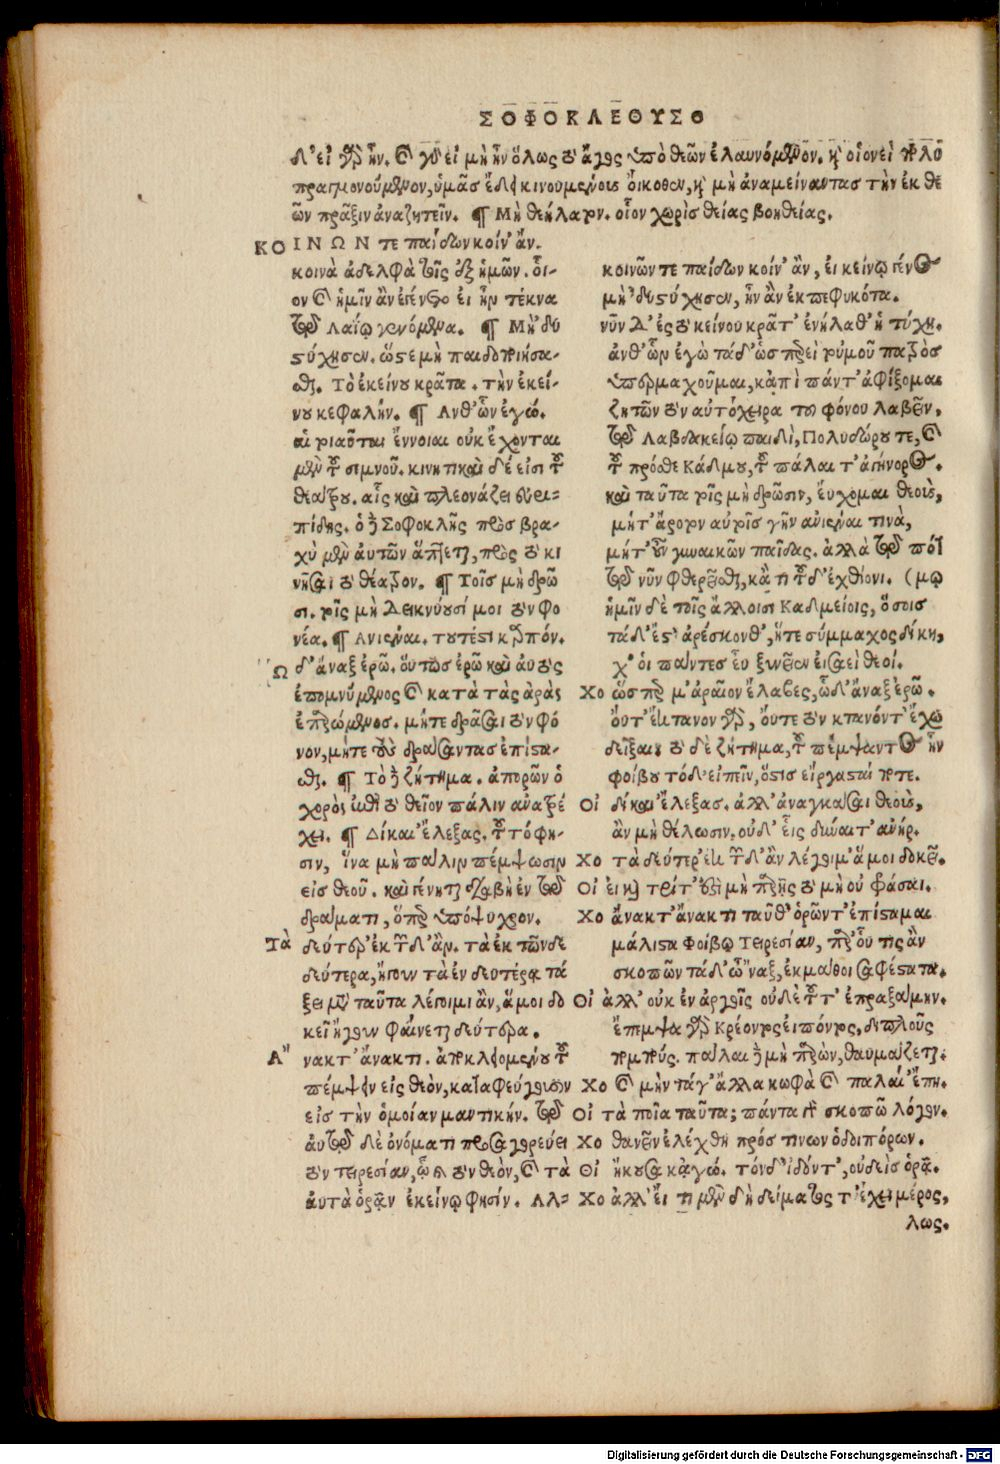 ΣΟΦΟΚΛΕΟΥΣ
δ' εἰ γὰρ ἦν. καὶ γὰρ εἰ μὴ ἦν ὅλως τὸ ἄγος ὑπὸ θεῶν ἐλαυνόμενον. καὶ οἱονεὶ
πραγμονούμενον, ὑμᾶς ἔδει κινουμένους οἴκοθεν, καὶ μὴ ἀναμείναντας τὴν ἐκ θε
ῶν πρᾶξιν ἀναζητεῖν. ¶ Μὴ θεήλατον. οἷον χωρὶς θείας βοηθείας.
ΚΟΙΝΩΝ τε παίδων κοίν' ἄν.
κοινὰ ἀδελφὰ τοῖς ἐξ ἡμῶν. οἷ-
ον καὶ ἡμῖν ἂν ἐγένετο εἰ ἦν τέκνα
τῷ Λαΐῳ γενόμενα. ¶ Μὴ 'δυ
στύχησεν. ὥστε μὴ παιδοποιήσα-
σθαι. Τὸ ἐκείνου κρᾶτα. τὴν ἐκεί-
νου κεφαλήν. ¶ Ἀνθ' ὧν ἐγώ.
αἱ τοιαῦται ἔννοιαι οὐκ ἔχονται
μὲν τοῦ σεμνοῦ. κινητικαὶ δέ εἰσι τοῦ
θεάτρου. αἷς καὶ πλεονάζει εὐρι-
πίδης. ὁ δὲ Σοφοκλῆς πρὸς βρα-
χὺ μὲν αὐτῶν ἅπτεται, πρὸς τὸ κι
νῆσαι τὸ θέατρον. ¶ Τοῖς μὴ δρῶ
σι. τοῖς μὴ δεικνύουσί μοι τὸν φο
νέα. ¶ Ἀνιέναι. τουτέστι καρπόν.
Ὦδ' ἄναξ ἐρῶ. οὕτως ἐρῶ καὶ αὐτὸς
ἐπομνύμενος καὶ κατὰ τὰς ἀρὰς
ἐπαρώμενος. μήτε δρᾶσαι τὸν φό
νον, μήτε τοὺς δράσαντας ἐπίστα-
σθαι. ¶ Τὸ δὲ ζήτημα. ἀπορῶν ὁ
χορὸς ἐπὶ τὸ θεῖον πάλιν ἀνατρέ
χει. ¶ Δίκαι' ἔλεξας. τοῦτό φη-
σιν, ἵνα μὴ πάλιν πέμψωσιν
εἰς θεοῦ. καὶ γένηται διατριβὴ ἐν τῷ
δράματι, ὅπερ ὑπόψυχρον.
Τὰ δεύτερ' ἐκ τῶνδ' ἄν. τὰ ἐκ τῶνδε
δεύτερα, ἤγουν τὰ ἐν δευτέρᾳ τά
ξει μετὰ ταῦτα λέγοιμι ἄν, ἅ μοι δο
κεῖ ἤγουν φαίνεται δεύτερα.
Ἄνακτ' ἄνακτι. ἀποκλειομένου τοῦ
πέμψειν εἰς θεὸν, καταφεύγουσιν
εἰς τὴν ὁμοίαν μαντικήν. τῷ
αὐτῷ δὲ ὀνόματι προσαγορεύει
τὸν τειρεσίαν, ᾧ καὶ τὸν θεὸν, καὶ τὰ
αὐτὰ ὁρᾶν ἐκείνῳ φησίν. Ἀλ=
κοινῶν τε παίδων κοίν' ἂν, εἰ κείνῳ γένος
μὴ 'δυστύχησεν, ἦν ἂν ἐκπεφυκότα.
νῦν δ' ἐς τὸ κείνου κρᾶτ' ἐνήλαθ' ἡ τύχη.
ἀνθ' ὧν ἐγὼ τάδ' ὡσπερεὶ τοὐμοῦ πατρὸς
ὑπερμαχοῦμαι, κἀπὶ πάντ' ἀφίξομαι
ζητῶν τὸν αὐτόχειρα τοῦ φόνου λαβεῖν,
τῷ Λαβδακείῳ παιδὶ, Πολυδώρου τε, καὶ
τοῦ πρόσθε Κάδμου, τοῦ πάλαι τ' ἀγήνορος.
καὶ ταῦτα τοῖς μὴ δρῶσιν, εὔχομαι θεοὺς,
μήτ' ἄροτον αὐτοῖς γῆν ἀνιέναι τινὰ,
μήτ' οὖν γυναικῶν παῖδας. ἀλλὰ τῷ πότ
τῷ νῦν φθερεῖσθαι, κἄτι τοῦδ' ἐχθίονι. (μῳ
ἡμῖν δὲ τοῖς ἄλλοισι Καδμείοις, ὅσοις
τάδ' ἔστ' ἀρέσκονθ', ἥτε σύμμαχος δίκη,
χ' οἱ πάντες εὖ ξυνεῖεν εἰσαεὶ θεοί.
ΧΟ ὥσπερ μ' ἀραῖον ἔλαβες, ὧδ' ἄναξ ἐρῶ.
οὔτ' ἔκτανον γὰρ, οὔτε τὸν κτανόντ' ἔχω
δεῖξαι. τὸ δὲ ζήτημα, τοῦ πέμψαντος ἦν
φοίβου τόδ' εἰπεῖν, ὅστις εἴργασταί ποτε.
ΟΙ δίκαι' ἔλεξας. ἀλλ' ἀναγκάσαι θεοὺς,
ἂν μὴ θέλωσιν, οὐδ' εἷς δύναιτ' ἀνήρ.
ΧΟ τὰ δεύτερ' ἐκ τῶνδ' ἂν λέγοιμ' ἅμοι δοκεῖ.
ΟΙ εἰ καὶ τρίτ' ἐστὶ μὴ παρῇς τὸ μὴ οὐ φράσαι.
ΧΟ ἄνακτ' ἄνακτι ταῦθ' ὁρῶντ' ἐπίσταμαι
μάλιστα Φοίβῳ Τειρεσίαν, παρ' οὗ τις ἂν
σκοπῶν τάδ' ὦ 'ναξ, ἐκμάθοι σαφέστατα.
ΟΙ ἀλλ' οὐκ ἐν ἀργοῖς οὐδὲ τοῦτ' ἐπραξάμην.
ἔπεμψα γὰρ Κρέοντος εἰπόντος, διπλοῦς
πομπούς. πάλαι δὲ μὴ παρὼν, θαυμάζεται.
ΧΟ καὶ μὴν τάγ' ἄλλα κωφὰ καὶ παλαί' ἔπη.
ΟΙ τὰ ποῖα ταῦτα; πάντα γὰρ σκοπῶ λόγον.
ΧΟ θανεῖν ἐλέχθη πρός τινων ὁδοιπόρων.
ΟΙ ἤκουσα κἀγώ. τόνδ' ἰδόντ', οὐδεὶς ὁρᾷ.
ΧΟ ἀλλ' εἴ τι μὲν δὴ δείματός τ' ἔχει μέρος,
λως.
Digitalisierung gefördert durch die Deutsche Forschungsgemeinschaft - DFG